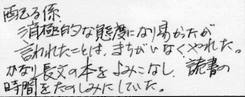 配る係、
消極的な態度になり易かったが
言われたことは、まちがいなくやれた。
かなり長文の本をよみこなし、読書の
時間をたのしみにしていた。